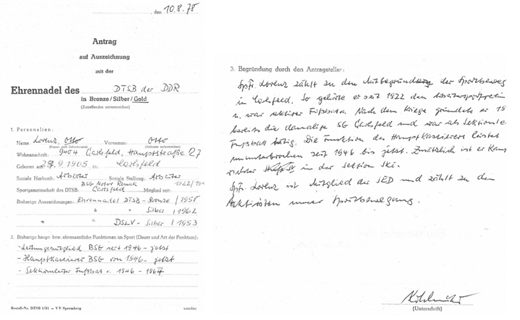 , den 10.8.78
Antrag
auf Auszeichnung
mit der
Ehrennadel des DTSB der DDR
in Bronze/Silber/Gold
1. Personalien:
Name Lorenz Otto Vorname: Otto
Wohnanschrift: 9404 Carlsfeld, Hauptstraße 27
Geboren am: 1905 in Carlsfeld
Soziale Herkunft: Arbeiter Soziale
Sportgemeinschaft des DTSB: BSG Carlsfeld Mitglied seit:
Bisherige Auszeichnungen: Ehrennadel DTSB - Bronze / 1958
" " - Silber / 1962
" DSLV - Silber / 1953
2. Bisherige haupt- bzw. ehrenamtliche Funktionen im Sport (Dauer und Art der Funktion):
- Leitungsmitglied BSG seit 1946 - jetzt
- Hauptkassierer BSG von 1946 - jetzt
- Sektionsleiter Fußball v. 1946 - 1967
3. Begründung durch den Antragsteller:
Spfr. Lorenz zählt zu den Mitbegründern der Sportbewegung
in Carlsfeld. So gehörte er seit 1922 dem
u. war aktiver Fußballer. Nach dem Kriege gründete er
bereits die damalige SG Carlsfeld und war als Sektionsleiter
Fußball tätig. Die Funktion des Hauptkassierers leistet
ununterbrochen seit 1946 bis jetzt. Zusätzlich ist er
in der Sektion Ski.
Spfr. Lorenz ist Mitglied der SED und zählt zu den
Aktivisten unserer Sportbewegung.
(Unterschrift)